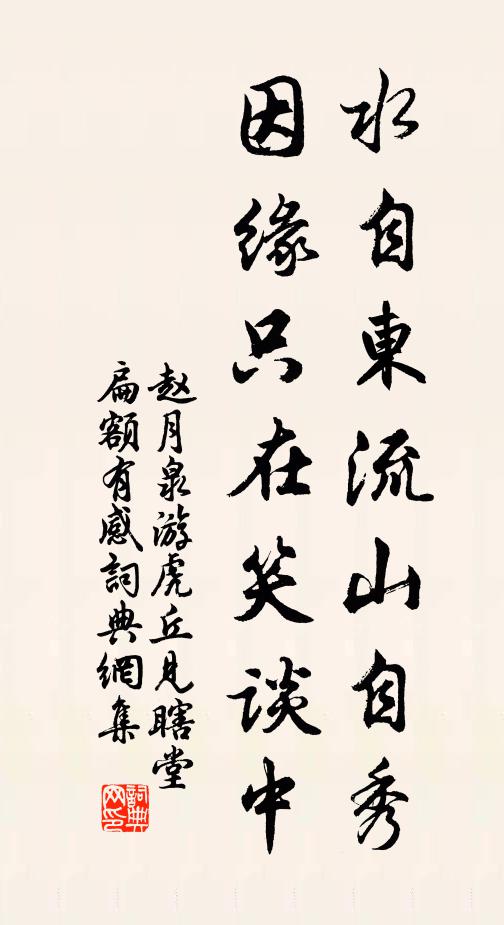 水自東流山自秀
因缘只在笑談中
赵月泉游虎丘見瞎堂
扁額有感詞典網集
詞典网印